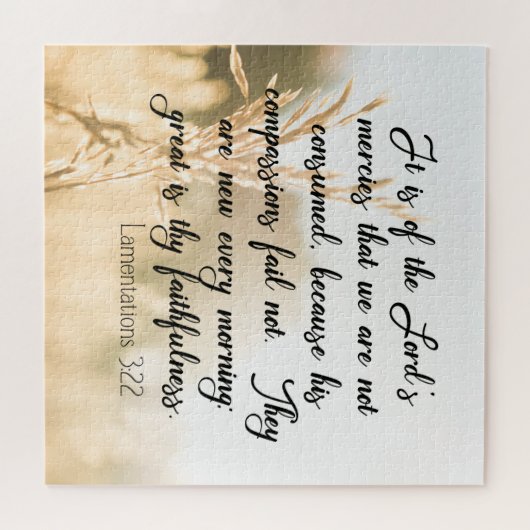 It is of the Lord's
mercies that we are not
consumed, because his
compassions fail not. They
are new every morning:
great is thy faithfulness.
Lamentations 3:22